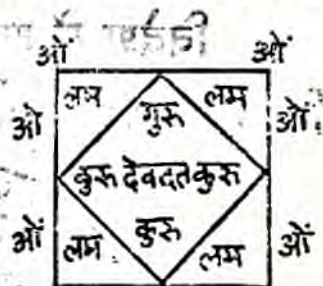 ओं ओं
लम लम
ओं गुरु ओं
कुरु देवदत कुरु
ओं लम कुरु लम ओं